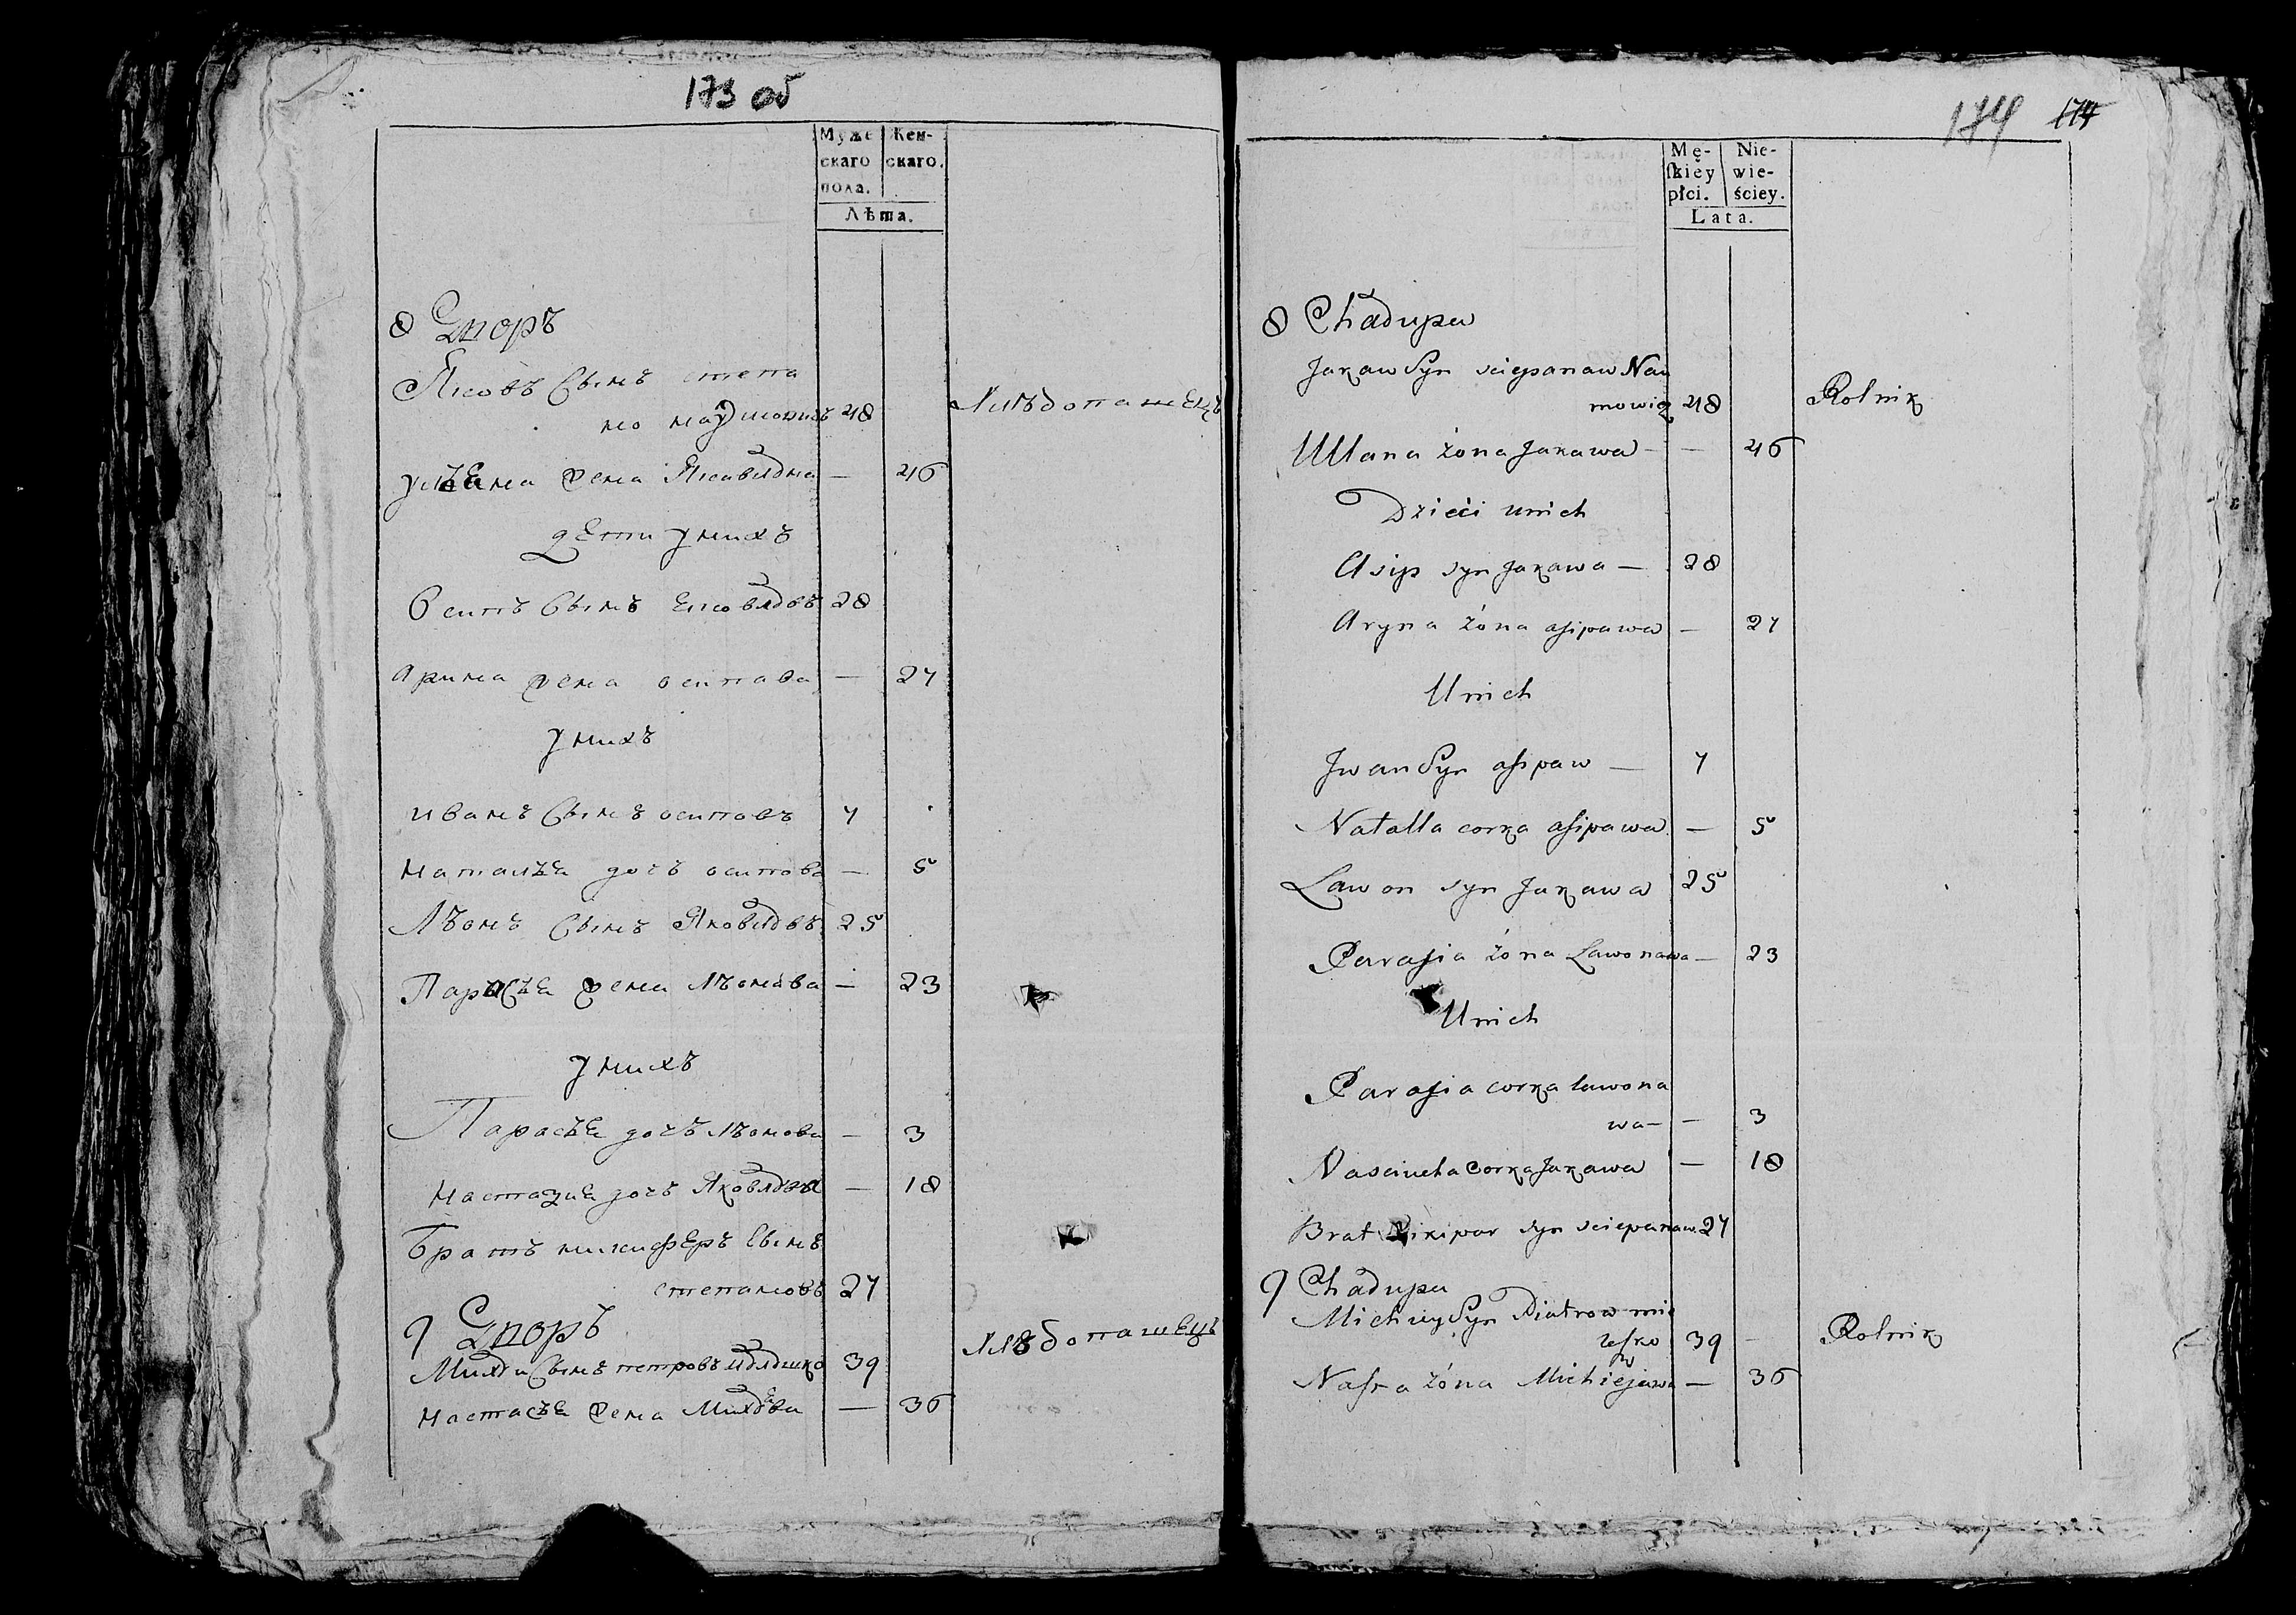 173 об
Муже
скаго
пола.
Жен-
скаго.
Лѣта.
8 Дворъ
Яковъ Сынъ степа
но наумовичъ 48 Хлѣбопашецъ
ульяна жена Яковлева — 46
дети у нихъ
Осипъ Сынъ Яковлевъ 28
Арина жена осипова — 27
у нихъ
иванъ Сынъ осиповъ 7
наталья дочь осипова — 5
Лѣонъ Сынъ Яковлевъ 25
Парасья жена Лѣонова — 23
у нихъ
Парасья дочь Лѣонова — 3
настазия дочь Яковлева — 18
Братъ никиферъ Сынъ
степановъ 27
9 Дворъ
Михей Сынъ петровъ 39 Хлѣбопашецъ
настасья жена Михеева — 36
174 174
Mę-
ſkiey
płci.
Nie-
wie-
ściey.
Lata.
8 Chadupa
Jakaw Syn sciepanaw Nau
mowicz 48 Rolnik
Ullana żona Jakawa — — 46
Dzieci unich
Asip syn Jakawa — 28
Aryna żóna asipawa — 27
Unich
Jwan Syn asipaw — 7
Natalla corka asipawa — 5
Lawon syn Jakawa 25
Parasia żóna Lawonawa — 23
Unich
Parasia corka lawona
wa — — 3
Nasciucha corka Jakawa — 18
Brat Nikipar syn sciepanaw 27
9 Chadupa
Michiey Syn Piatrow mie
leſko 39 — Rolnik
Naſta żóna Michiejewa — 36